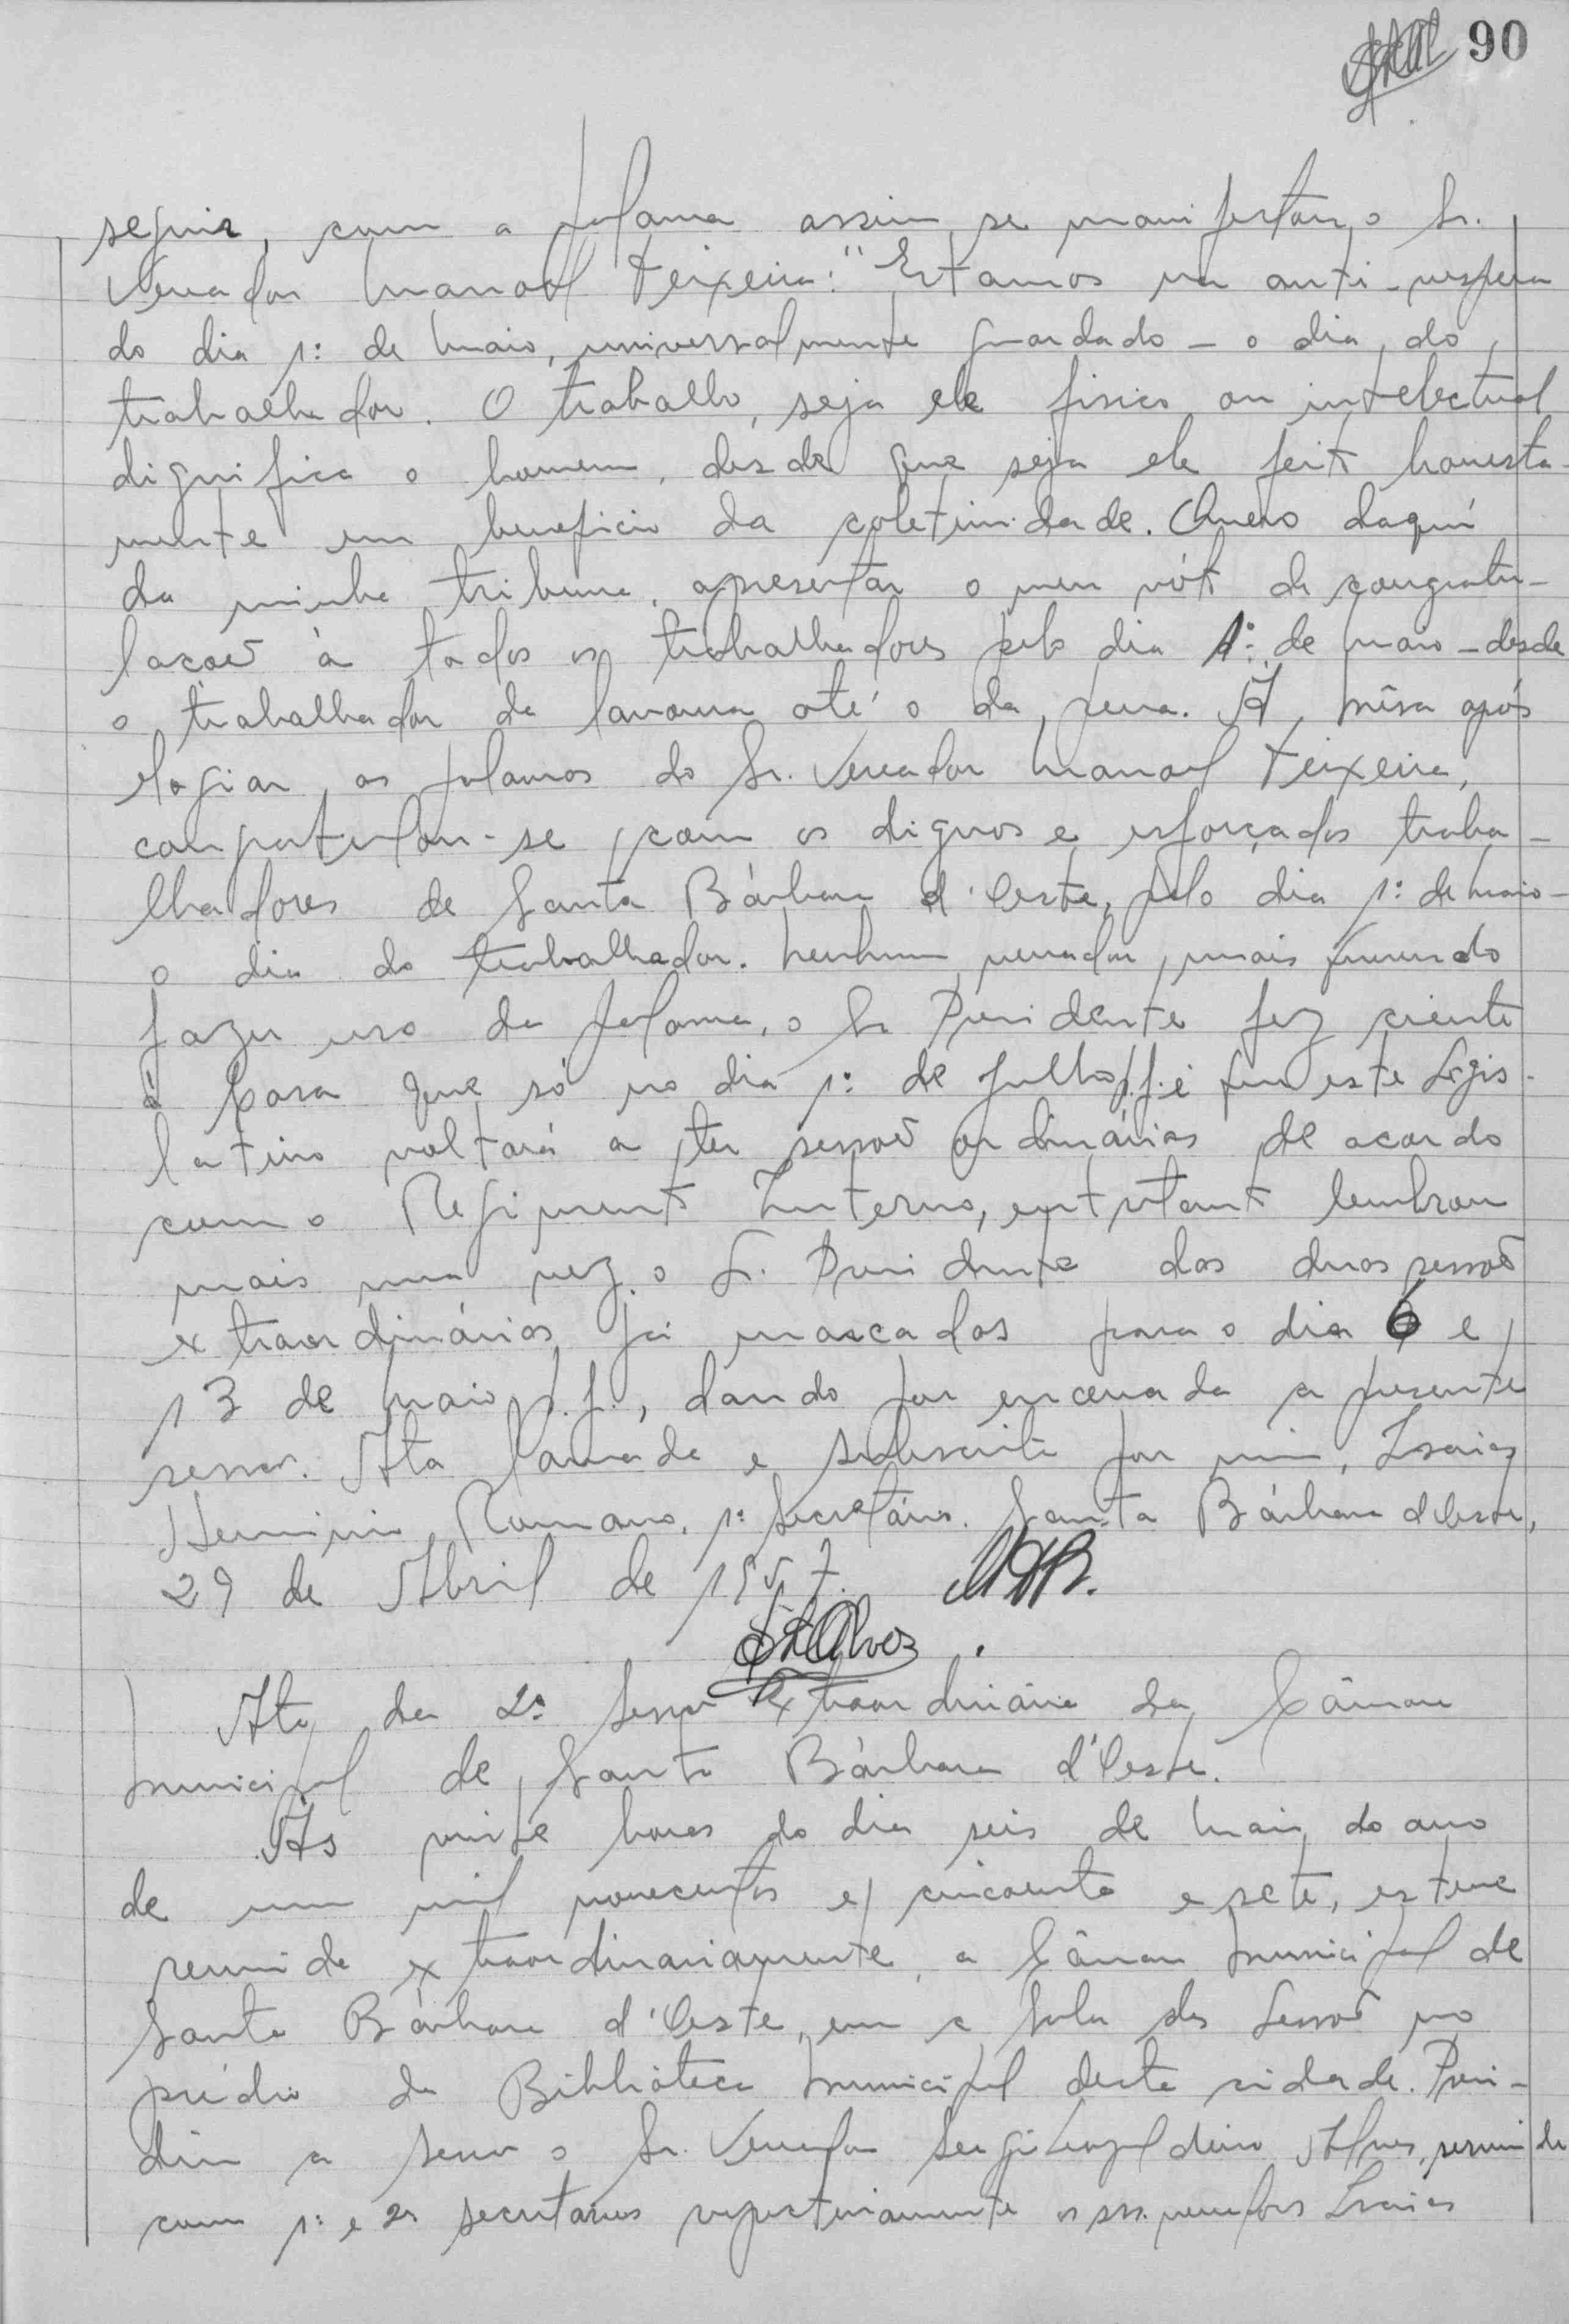 90
seguir, com a palavra assim se manifestou o Sr.
Vereador Manoel Teixeira: "Estamos na anti-vespera
do dia 1º de Maio, universalmente guardado - o dia do
trabalhador. O trabalho, seja ele fisico ou intelectual
dignifica o homem, desde que seja ele feito honesta-
mente em beneficio da coletividade. Quero daquí
da minha tribuna, apresentar o meu vóto de congratu-
lacoẽs à todos os trabalhadores pelo dia 1º de maio - desde
o trabalhador da lavoura até o da pena. A Mêsa após
elogiar as palavras do Sr. Vereador Manoel Teixeira,
congratulou-se com os dignos e esforçados traba-
lhadores de Santa Bárbara d'Oeste, pelo dia 1º de Maio -
o dia do trabalhador. Nenhum vereador mais querendo
fazer uso da palavra, o Sr Presidente fez ciente
à Casa que só no dia 1º de Julho p.f. é que este Legis-
lativo voltará a ter sessoẽs ordinárias de acordo
com o Regimento Interno, entretanto lembrou
mais uma vez o Sr. Presidente das duas sessoẽs
extraordinárias já marcadas para o dia 6 e
13 de Maio p.f., dando por encerrada a presente
sessão. Ata lavrada e subscrita por mim, Isaias
Herminio Romano, 1º Secretário. Santa Bárbara d'Oeste,
29 de Abril de 1957.
Alves
Ata da 2ª Sessão Extraordinária da Câmara
Municipal de Santa Bárbara d'Oeste.
Às vinte horas do dia seis de Maio do ano
de um mil novecentos e cincoenta e sete, esteve
reunida extraordinariamente, a Câmara Municipal de
Santa Bárbara d'Oeste, em a Sala das Sessoẽs no
prédio da Biblióteca Municipal desta cidade. Presi-
diu a sessão o Sr. Vereador Alves,
com 1º e 2º secretarios respectivamente os srs. vereadores Isaias